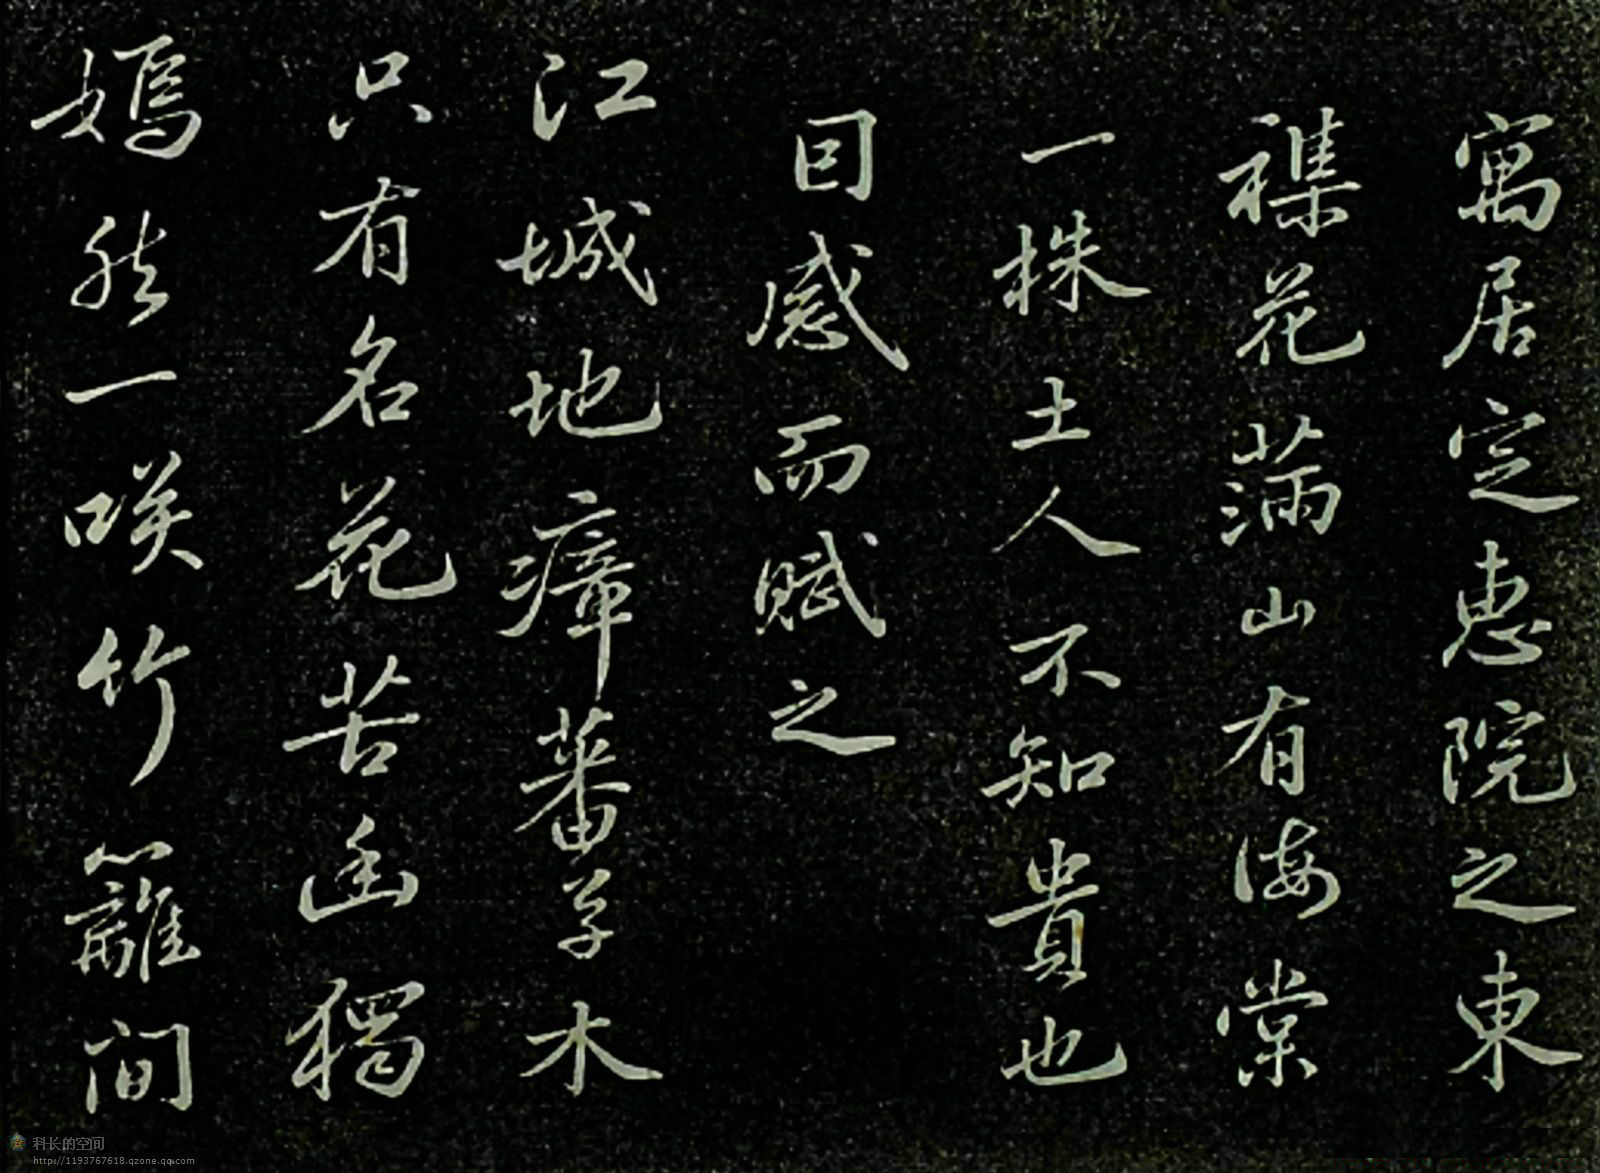 寓居定惠院之東
襍花蒲山有海棠
一株土人不知貴也
囙感而賦之
江城地瘴蕃草木
只有名花苦幽獨
嫣然一咲竹籬间
科长的空间
http://1193767618.qzone.qq.com